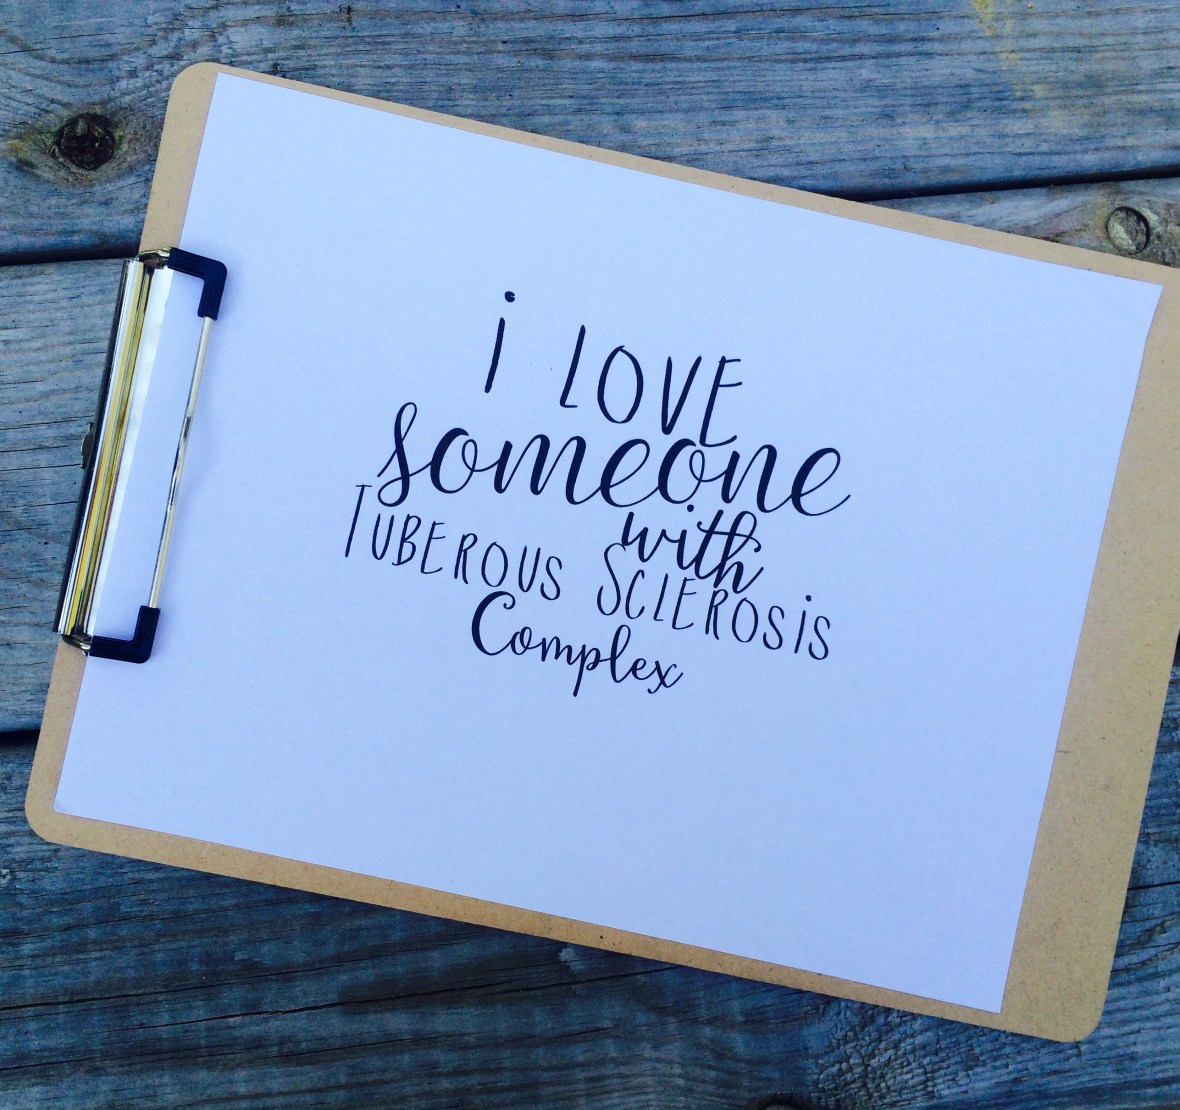 i LOVE
someone
with
TUBEROUS SCLEROSiS
Complex